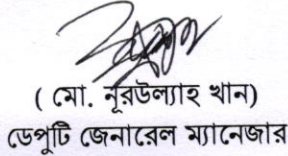 ( মো. নূরউল্যাহ খান)
ডেপুটি জেনারেল ম্যানেজার